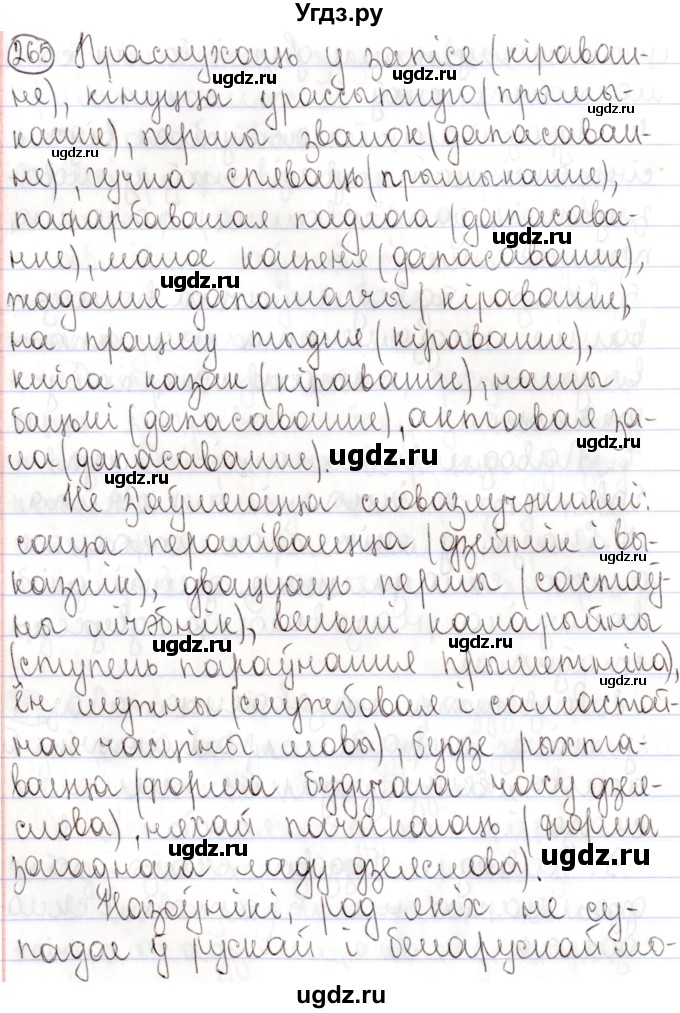 Угдз.ру
265 Праслухаць у запісе (кіраван-
не), кінуцца урассыпную (прымы-
канне), першы званок (дапасаван-
не), гучна спяваць (прымыканне),
пафарбаваная падлога (дапасава-
нне), малое каценя (дапасаванне),
жаданне дапамагчы (кіраванне),
на працягу тыдня (кіраванне),
кніга казак (кіраванне), нашы
бацькі (дапасаванне), актавая за-
ла (дапасаванне).
Не з'яўляюцца словазлучэннямі:
сонца пераліваецца (дзейнік і вы-
казнік), дваццаць першы (састаў-
ны лічэбнік), вельмі каларытны
(ступень параўнання прыметніка),
ён мужны (службовая і самастой-
ная часціны мовы), будзе рыхта-
вацца (форма будучага часу дзея-
слова), няхай пачакаюць (форма
загаднага ладу дзеяслова).
Назоўнікі, род якіх не су-
падае ў рускай і беларускай мо-
ugdz.ru